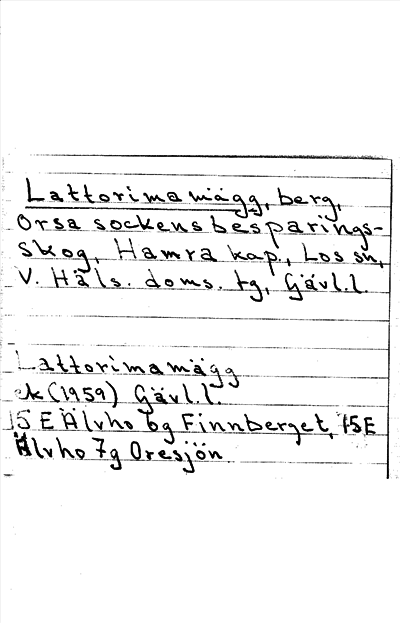 Lattorimamägg, berg,
Orsa sockens besparings-
skog, Hamra kap., Los sn,
V. Häls. doms. tg, Gävl.l.
Lattorimamägg
ek (1959) Gävl.l.
15E Älvho 6g Finnberget, 15E
Älvho 7g Oresjön